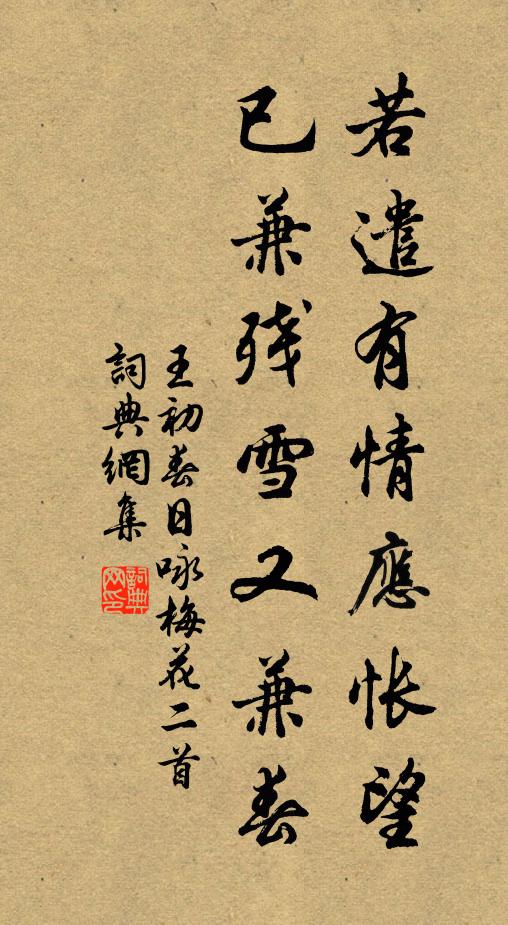 若遣有情應悵望
已兼残雪又兼春
王初春日咏梅花二首
詞典網集
詞典网印